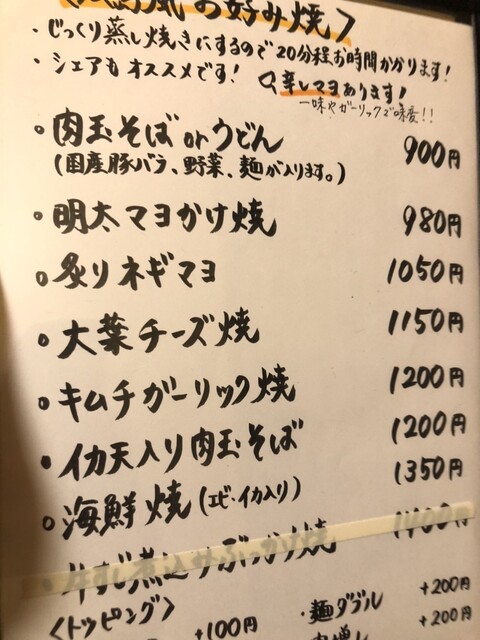 風お好み焼〉
・じっくり蒸し焼きにするので20分程お時間かかります!
・シェアもオススメです!
辛しマヨあります!
一味やガーリックで味変!!
・肉玉そばorうどん 900円
(国産豚バラ、野菜、麺が入ります。)
・明太マヨかけ焼 980円
・炙りネギマヨ 1050円
・大葉チーズ焼 1150円
・キムチガーリック焼 1200円
・イカ天入り肉玉そば 1200円
・海鮮焼(エビ・イカ入り) 1350円
・牛すじ煮込みぶっかけ焼 1400円
〈トッピング〉
+100円
・麺ダブル +200円
+200円